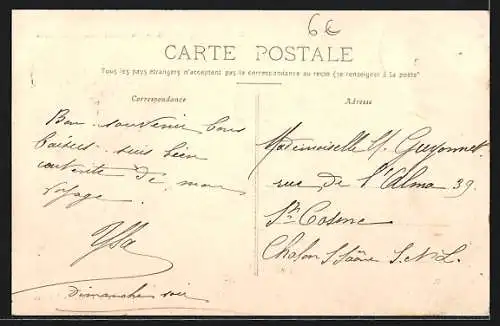 6€
CARTE POSTALE
Tous les pays étrangers n'acceptent pas la correspondance au recto (se renseigner à la poste)
Correspondance
Bon souvenir bons
baisers suis bien
contente de mon
voyage.
Dimanche soir
Adresse
Mademoiselle Guyonnet
rue de l'Alma 39.
St Cosme
Chalon S. Saône S. & L.